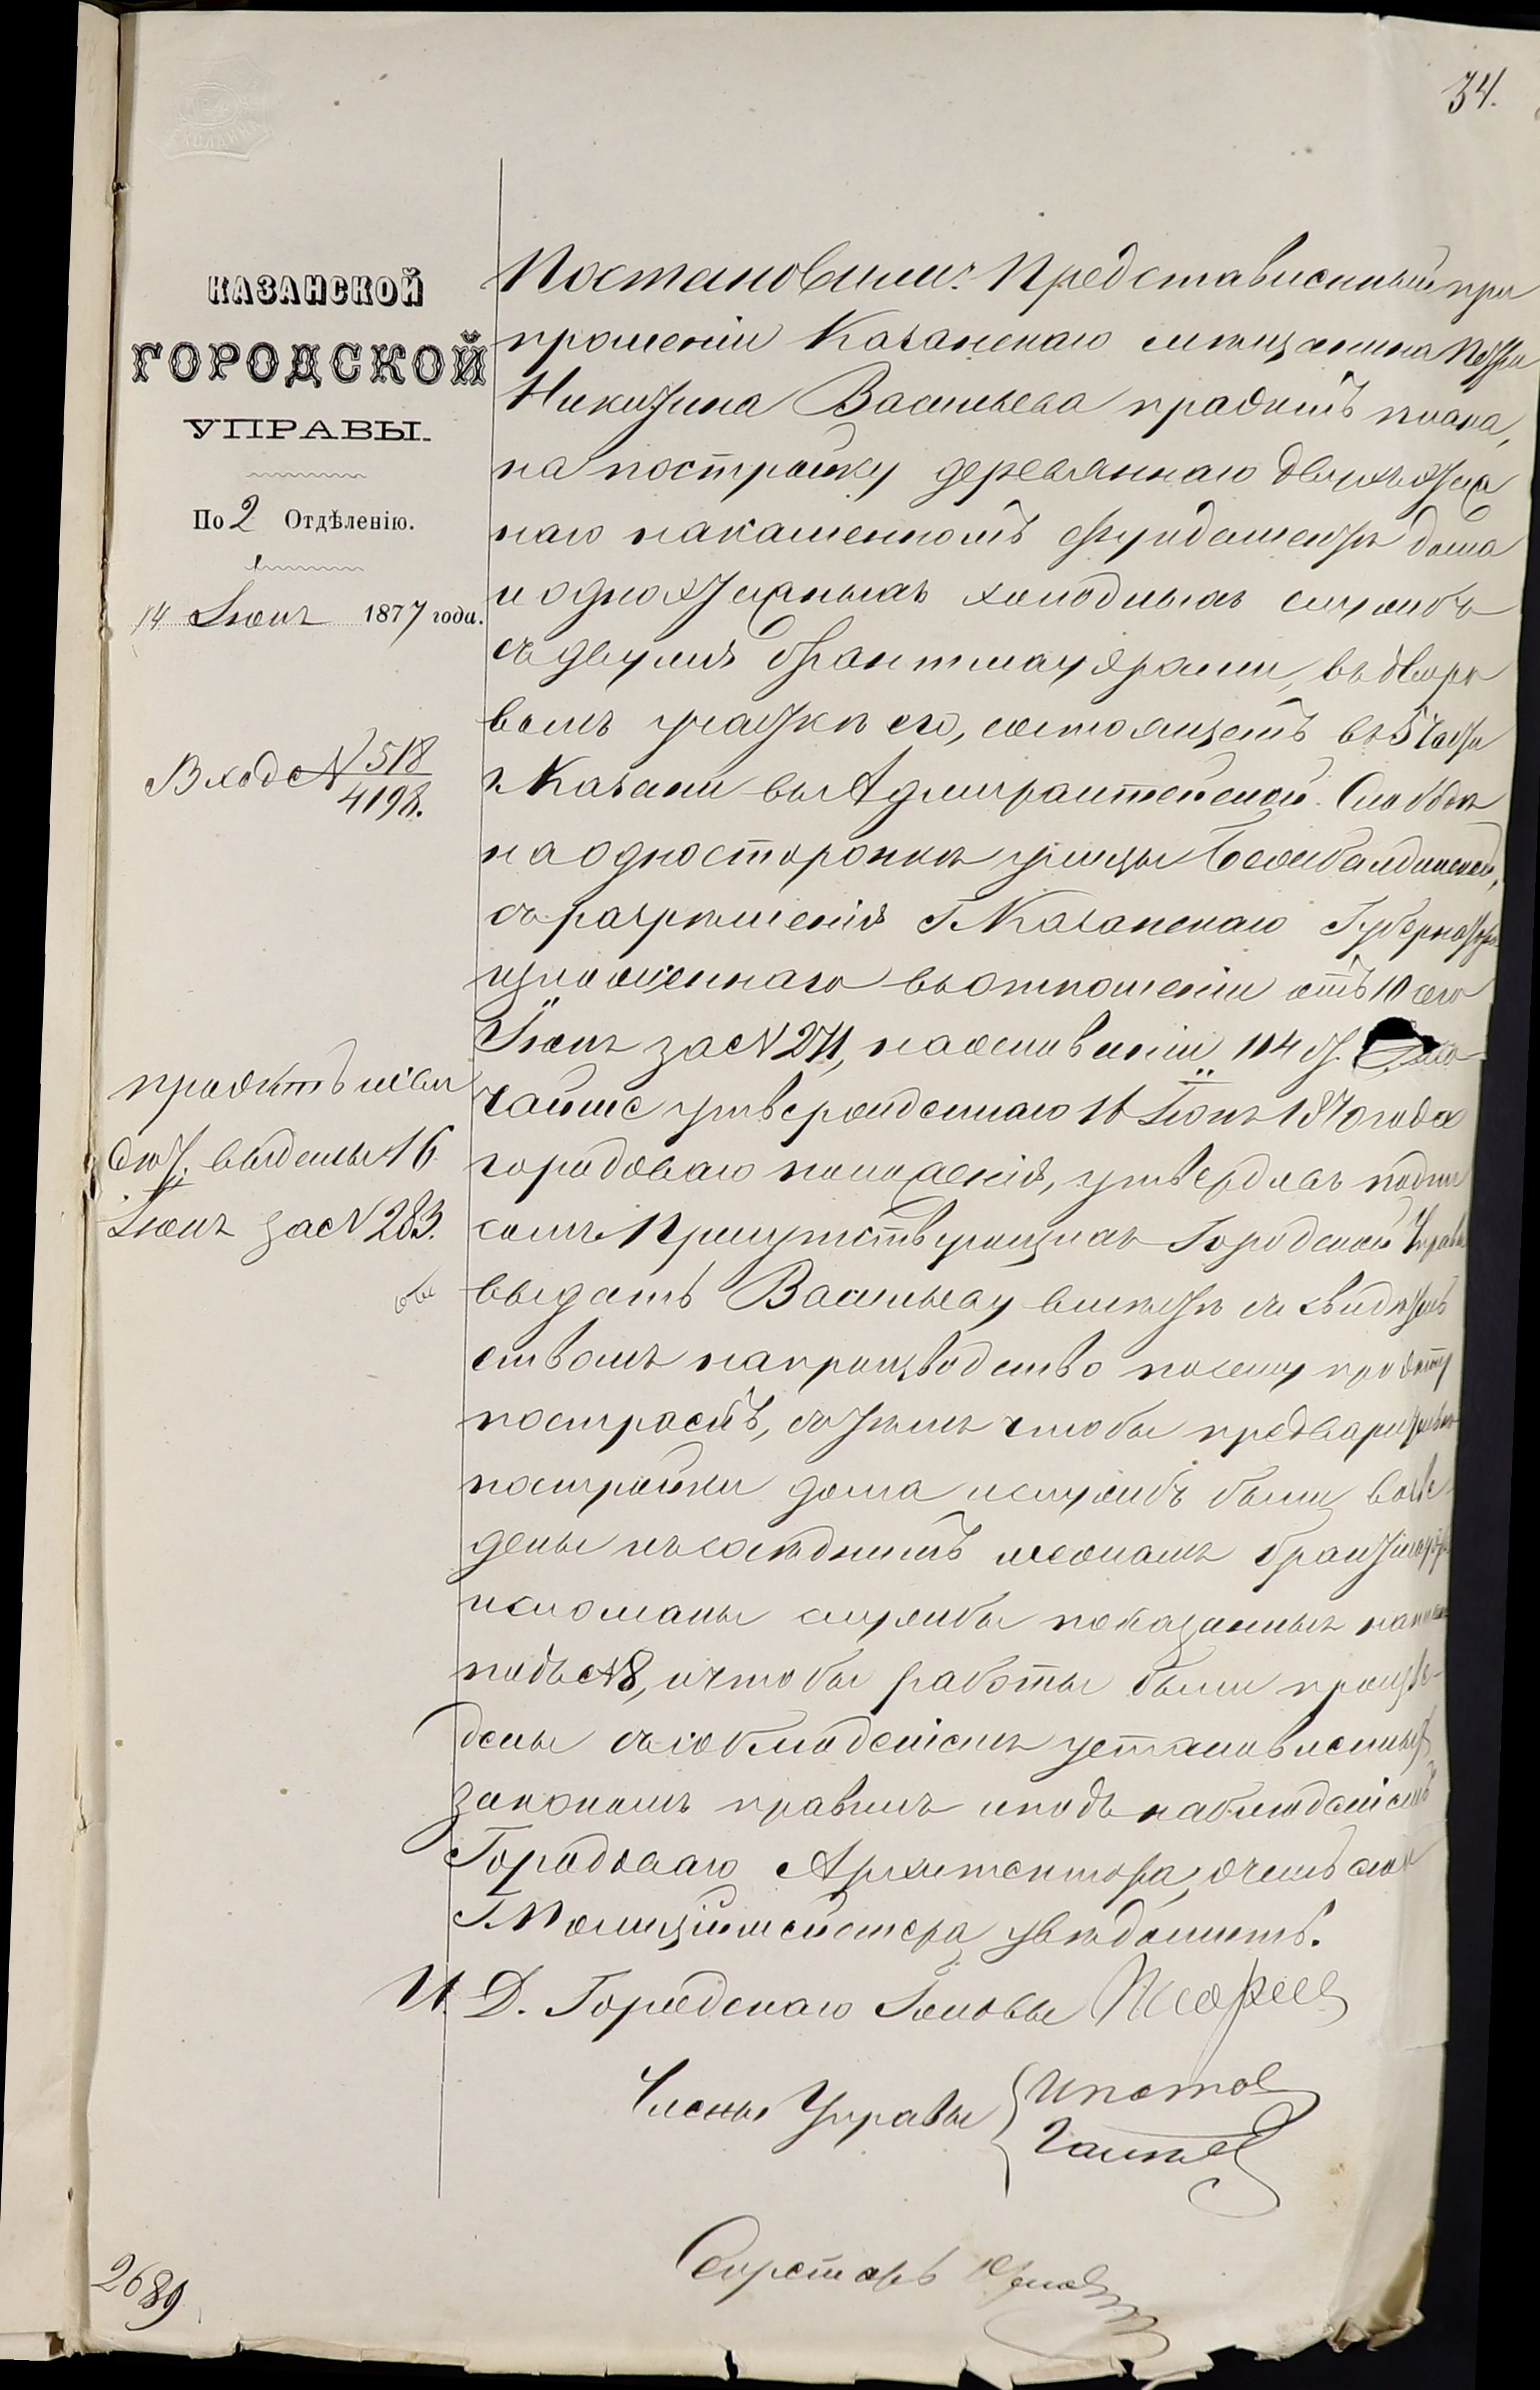 34.
КАЗАНСКОЙ
ГОРОДСКОЙ
УПРАВЫ.
По 2 Отдѣленію.
14 Іюня 1877 года.
Входе № 518
4198.
проэктъ и свид.
выданы 16
Іюня за № 283.
Постановили: Представленный при
прошеніи Казанскаго мѣщанина Петра
Никитина Васильева проэктъ плана,
на постройку деревяннаго двухъэтаж
наго на каменномъ фундаментѣ дома
и одноэтажныхъ холодныхъ службъ
съ двумя брантмауэрами, въ дворо
вомъ участкѣ его, состоящемъ въ 5 части
г. Казани въ Адмиралтейской Слободѣ
на одностороннѣ улицы Бешбалдинской,
съ разрѣшенія Г. Казанскаго Губернатора
изложеннаго въ отношеніи отъ 10 сего
Іюня за № 271, на основаніи 114 ст. Высо
чайше утвержденнаго 16 Іюня 1870 года
городоваго положенія, утвердивъ подпи
сомъ Присутствующихъ Городской Управы
выдать Васильеву вмѣстѣ съ свидѣтель
ствомъ на производство по сему проэкту
построекъ, съ тѣмъ чтобы предварительно
постройки дома и службъ были возве
дены къ сосѣднимъ межамъ брантмауэры
и сломаны службы показанныя на планѣ
подъ № 8, и чтобы работы были произве
дены съ соблюденіемъ установленныхъ
закономъ правилъ и подъ наблюденіемъ
Городоваго Архитектора, о чемъ
Г. Полиціймейстера увѣдомить.
И. Д. Городскаго Головы
Члены Управы
Секретарь
2689